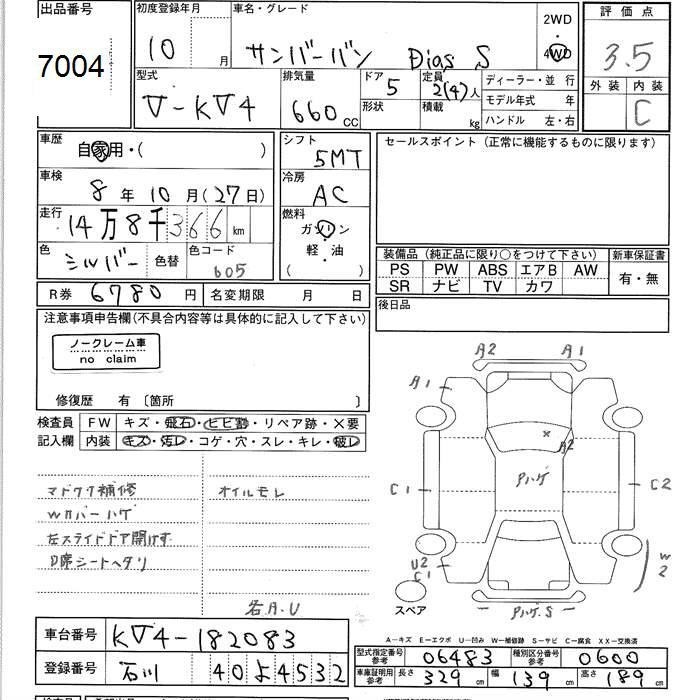 出品番号
7004
初度登録年月
10 月
車名・グレード
サンバーバン Dias S
2WD
4WD
評価点
3.5
外装 内装
C
型式
V-KV4
排気量
660 CC
ドア
5
形状
定員
2(4)人
積載
kg
ディーラー・並行
モデル年式 年
ハンドル 左・右
車歴
自家用・( )
車検
8年10月(27日)
走行
14万8千366 km
色
シルバー
色替
色コード
605
シフト
5MT
冷房
AC
燃料
ガソリン
軽・油
( )
セールスポイント(正常に機能するものに限ります)
装備品(純正品に限り○をつけて下さい)
新車保証書
PS PW ABS エアB AW
SR ナビ TV カワ
有・無
R券 6780円
名変期限 月 日
後日品
注意事項申告欄(不具合内容等は具体的に記入して下さい)
ノークレーム車
no claim
修復歴 有 〔箇所 〕
検査員
記入欄
FW キズ・飛石・ヒビ割・リペア跡・×要
内装 キズ・汚レ・コゲ・穴・スレ・キレ・破レ
マドワク補修
Wカバーハゲ
左スライドドア開けず
D席シートヘタリ
オイルモレ
名A.U
A2 A1
A1
A2
Pハゲ
C1
C2
U2
C1
W2
Pハゲ.S
スペア
A-キズ E-エクボ U-凹み W-補修跡 S-サビ C-腐食 XX-交換済
車台番号 KV4-182083
登録番号 石川 40よ4532
型式指定番号
参考
06483
種別区分番号
参考
0600
車庫証明用
参考
長さ 329 cm
幅 139 cm
高さ 189 cm